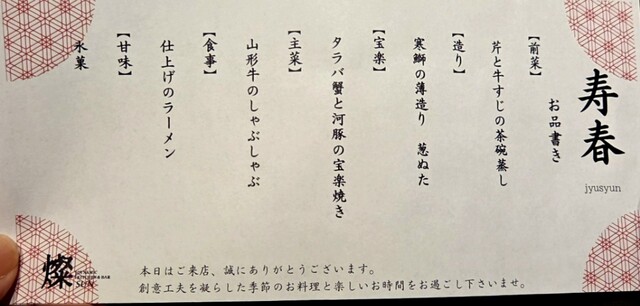 寿春
jyusyun
お品書き
【前菜】
芹と牛すじの茶碗蒸し
【造り】
寒鰤の薄造り　葱ぬた
【宝楽】
タラバ蟹と河豚の宝楽焼き
【主菜】
山形牛のしゃぶしゃぶ
【食事】
仕上げのラーメン
【甘味】
氷菓
燦
SUN
本日はご来店、誠にありがとうございます。
創意工夫を凝らした季節のお料理と楽しいお時間をお過ごし下さいませ。